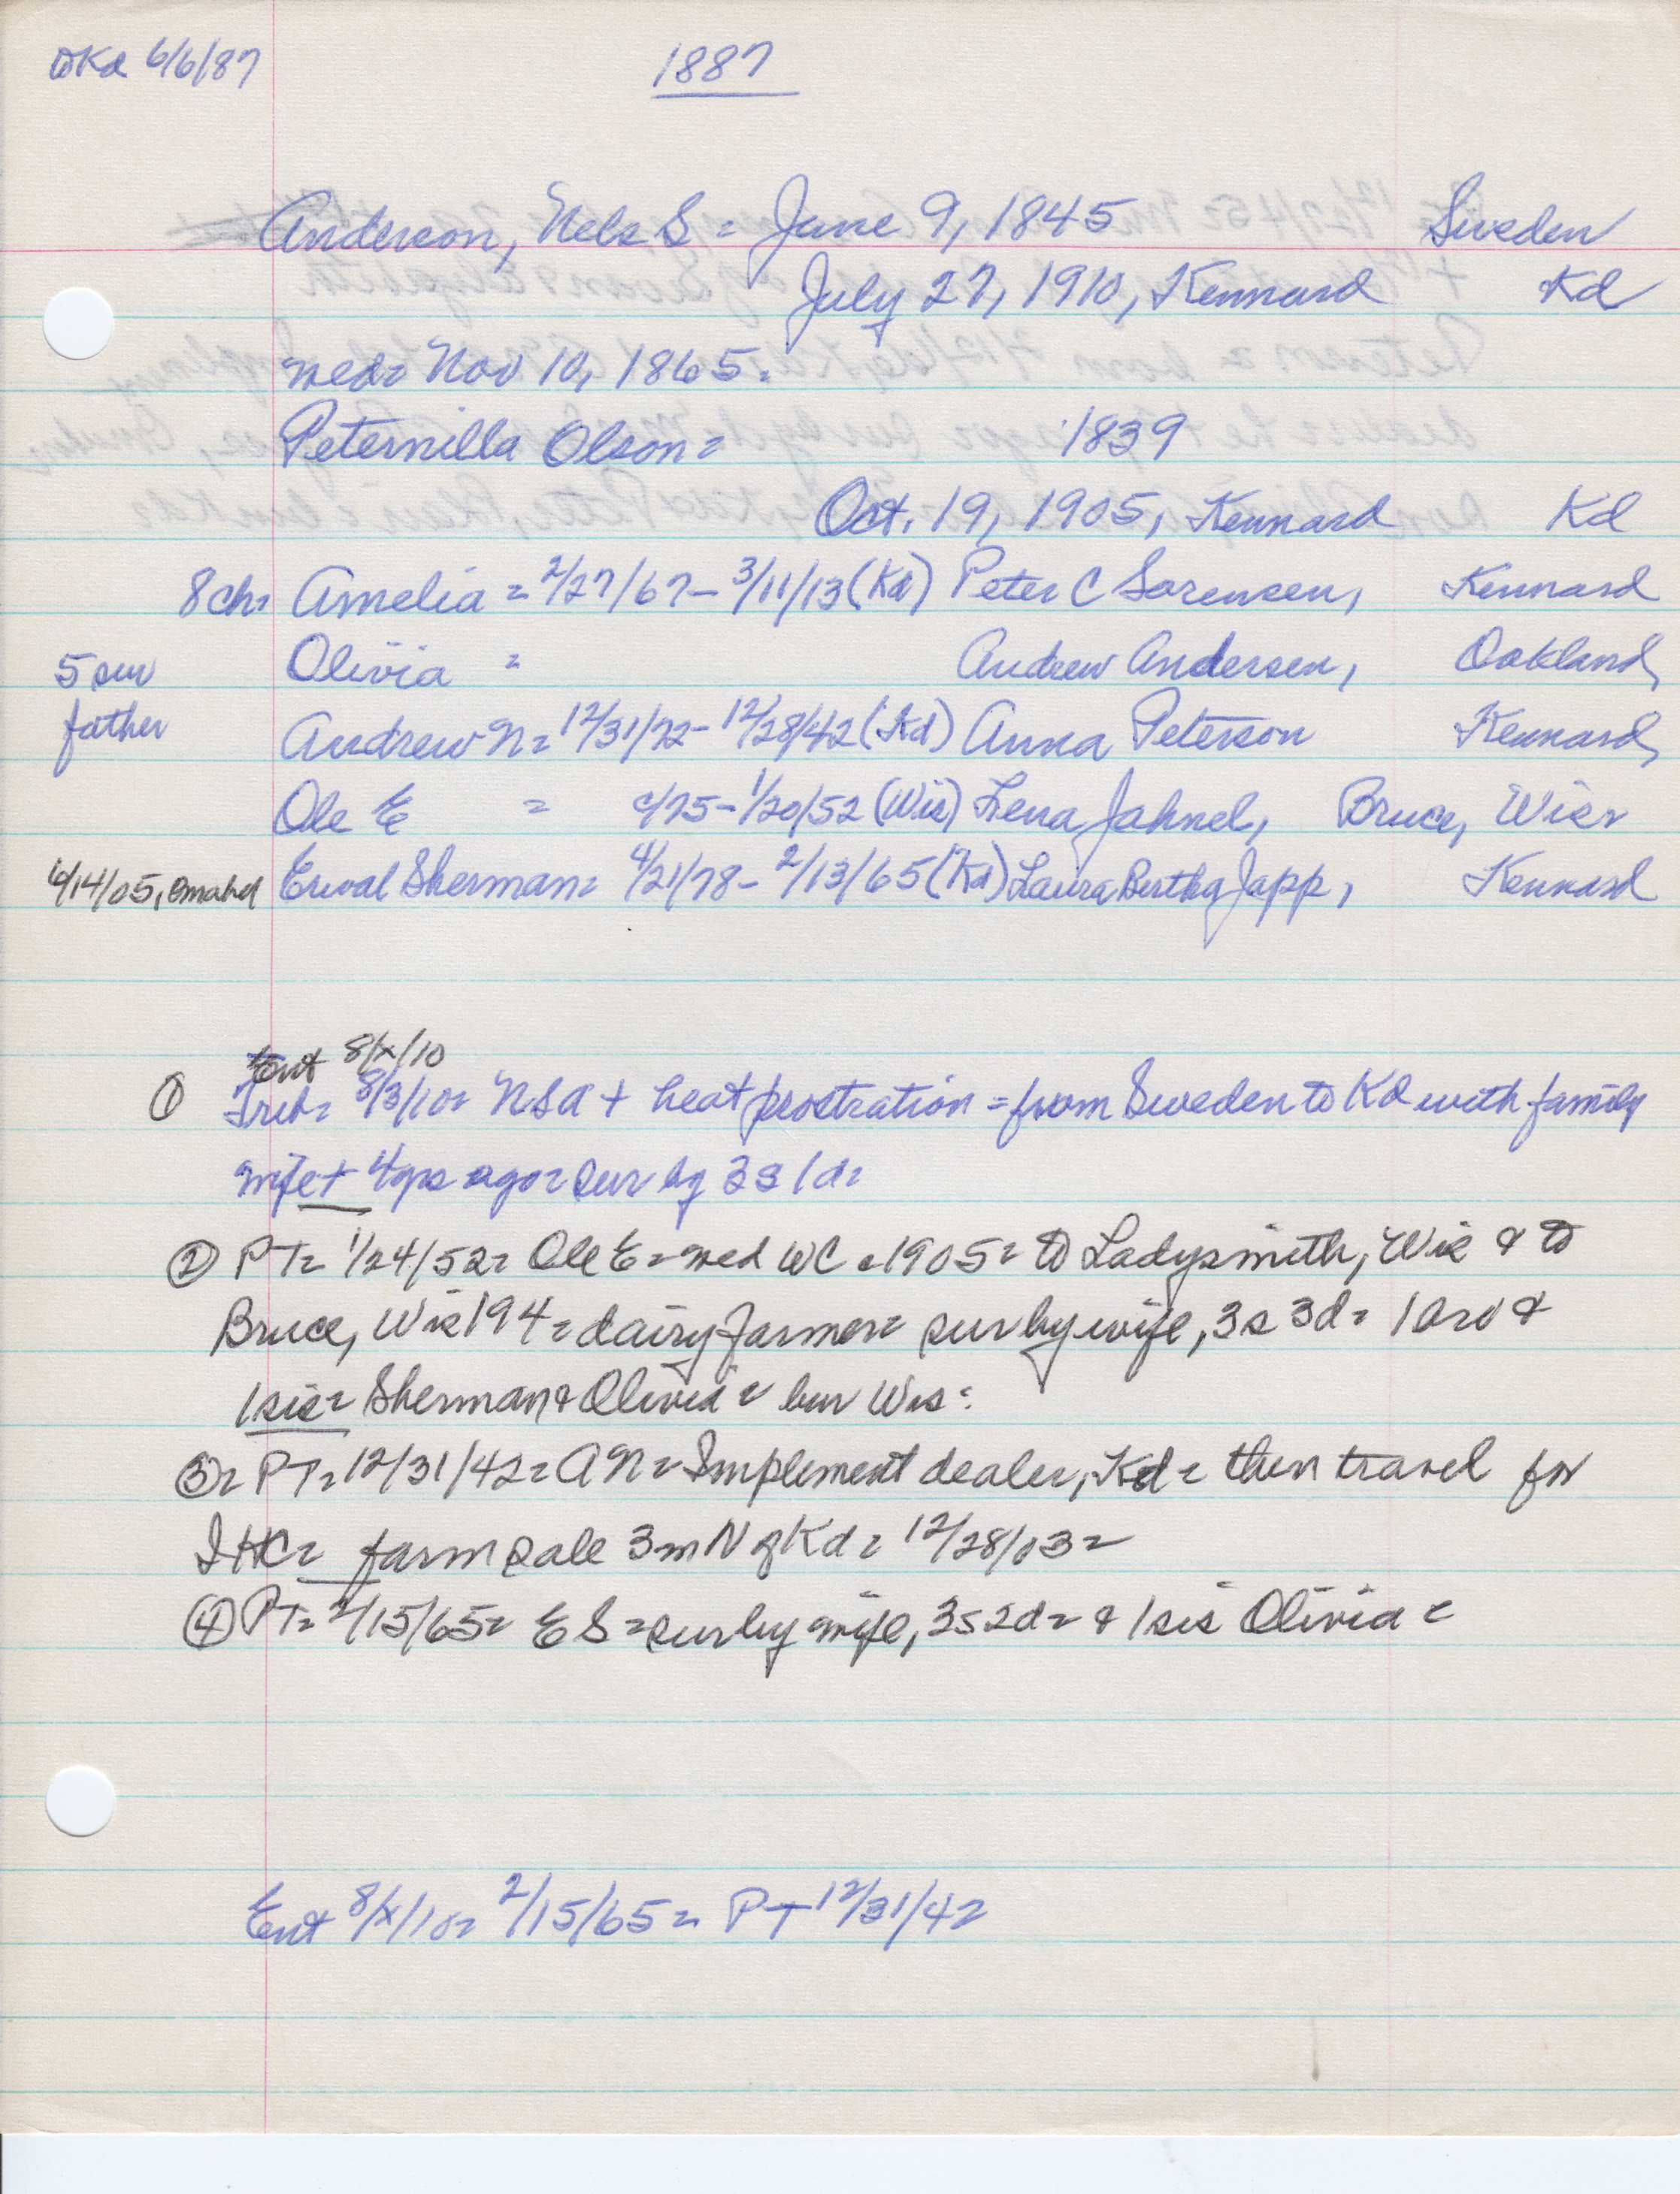 to Kd 6/6/87
1887
Anderson, Nels S = June 9, 1845 Sweden
July 27, 1910, Kennard Kd
wed= Nov 10, 1865.
Peternilla Olson = 1839
Oct. 19, 1905, Kennard Kd
8 ch= Amelia = 2/27/67 - 3/11/13 (Kd) Peter C Sorensen, Kennard
5 sur Olivia = Andrew Andersen, Oakland,
father Andrew N= 12/31/72 - 12/28/42 (Kd) Anna Peterson Kennard,
Ole E = c/75 - 1/20/52 (Wis) Lena Jahnel, Bruce, Wis=
6/14/05, Omaha Erwal Sherman= 4/21/78 - 2/13/65 (Kd) Laura Bertha Japp, Kennard
Ent 8/x/10
① Trib= 8/3/10= NSA + heat prostration = from Sweden to Kd with family
wife + 4 yrs ago = sur by 3s 1d=
② PT= 1/24/52= Ole E= wed WC c1905= to Ladysmith, Wis & to
Bruce, Wis 194 = dairy farmer= sur by wife, 3s 3d= 1 bro &
1 sis= Sherman & Olivia = bur Wis=
③= PT= 12/31/42= A N= Implement dealer, Kd= then travel for
IHC= farm sale 3m N of Kd= 12/28/03=
④ PT= 2/15/65= E S= sur by wife, 3s 2d= & 1 sis Olivia =
Ent 8/x/10= 2/15/65= PT 12/31/42